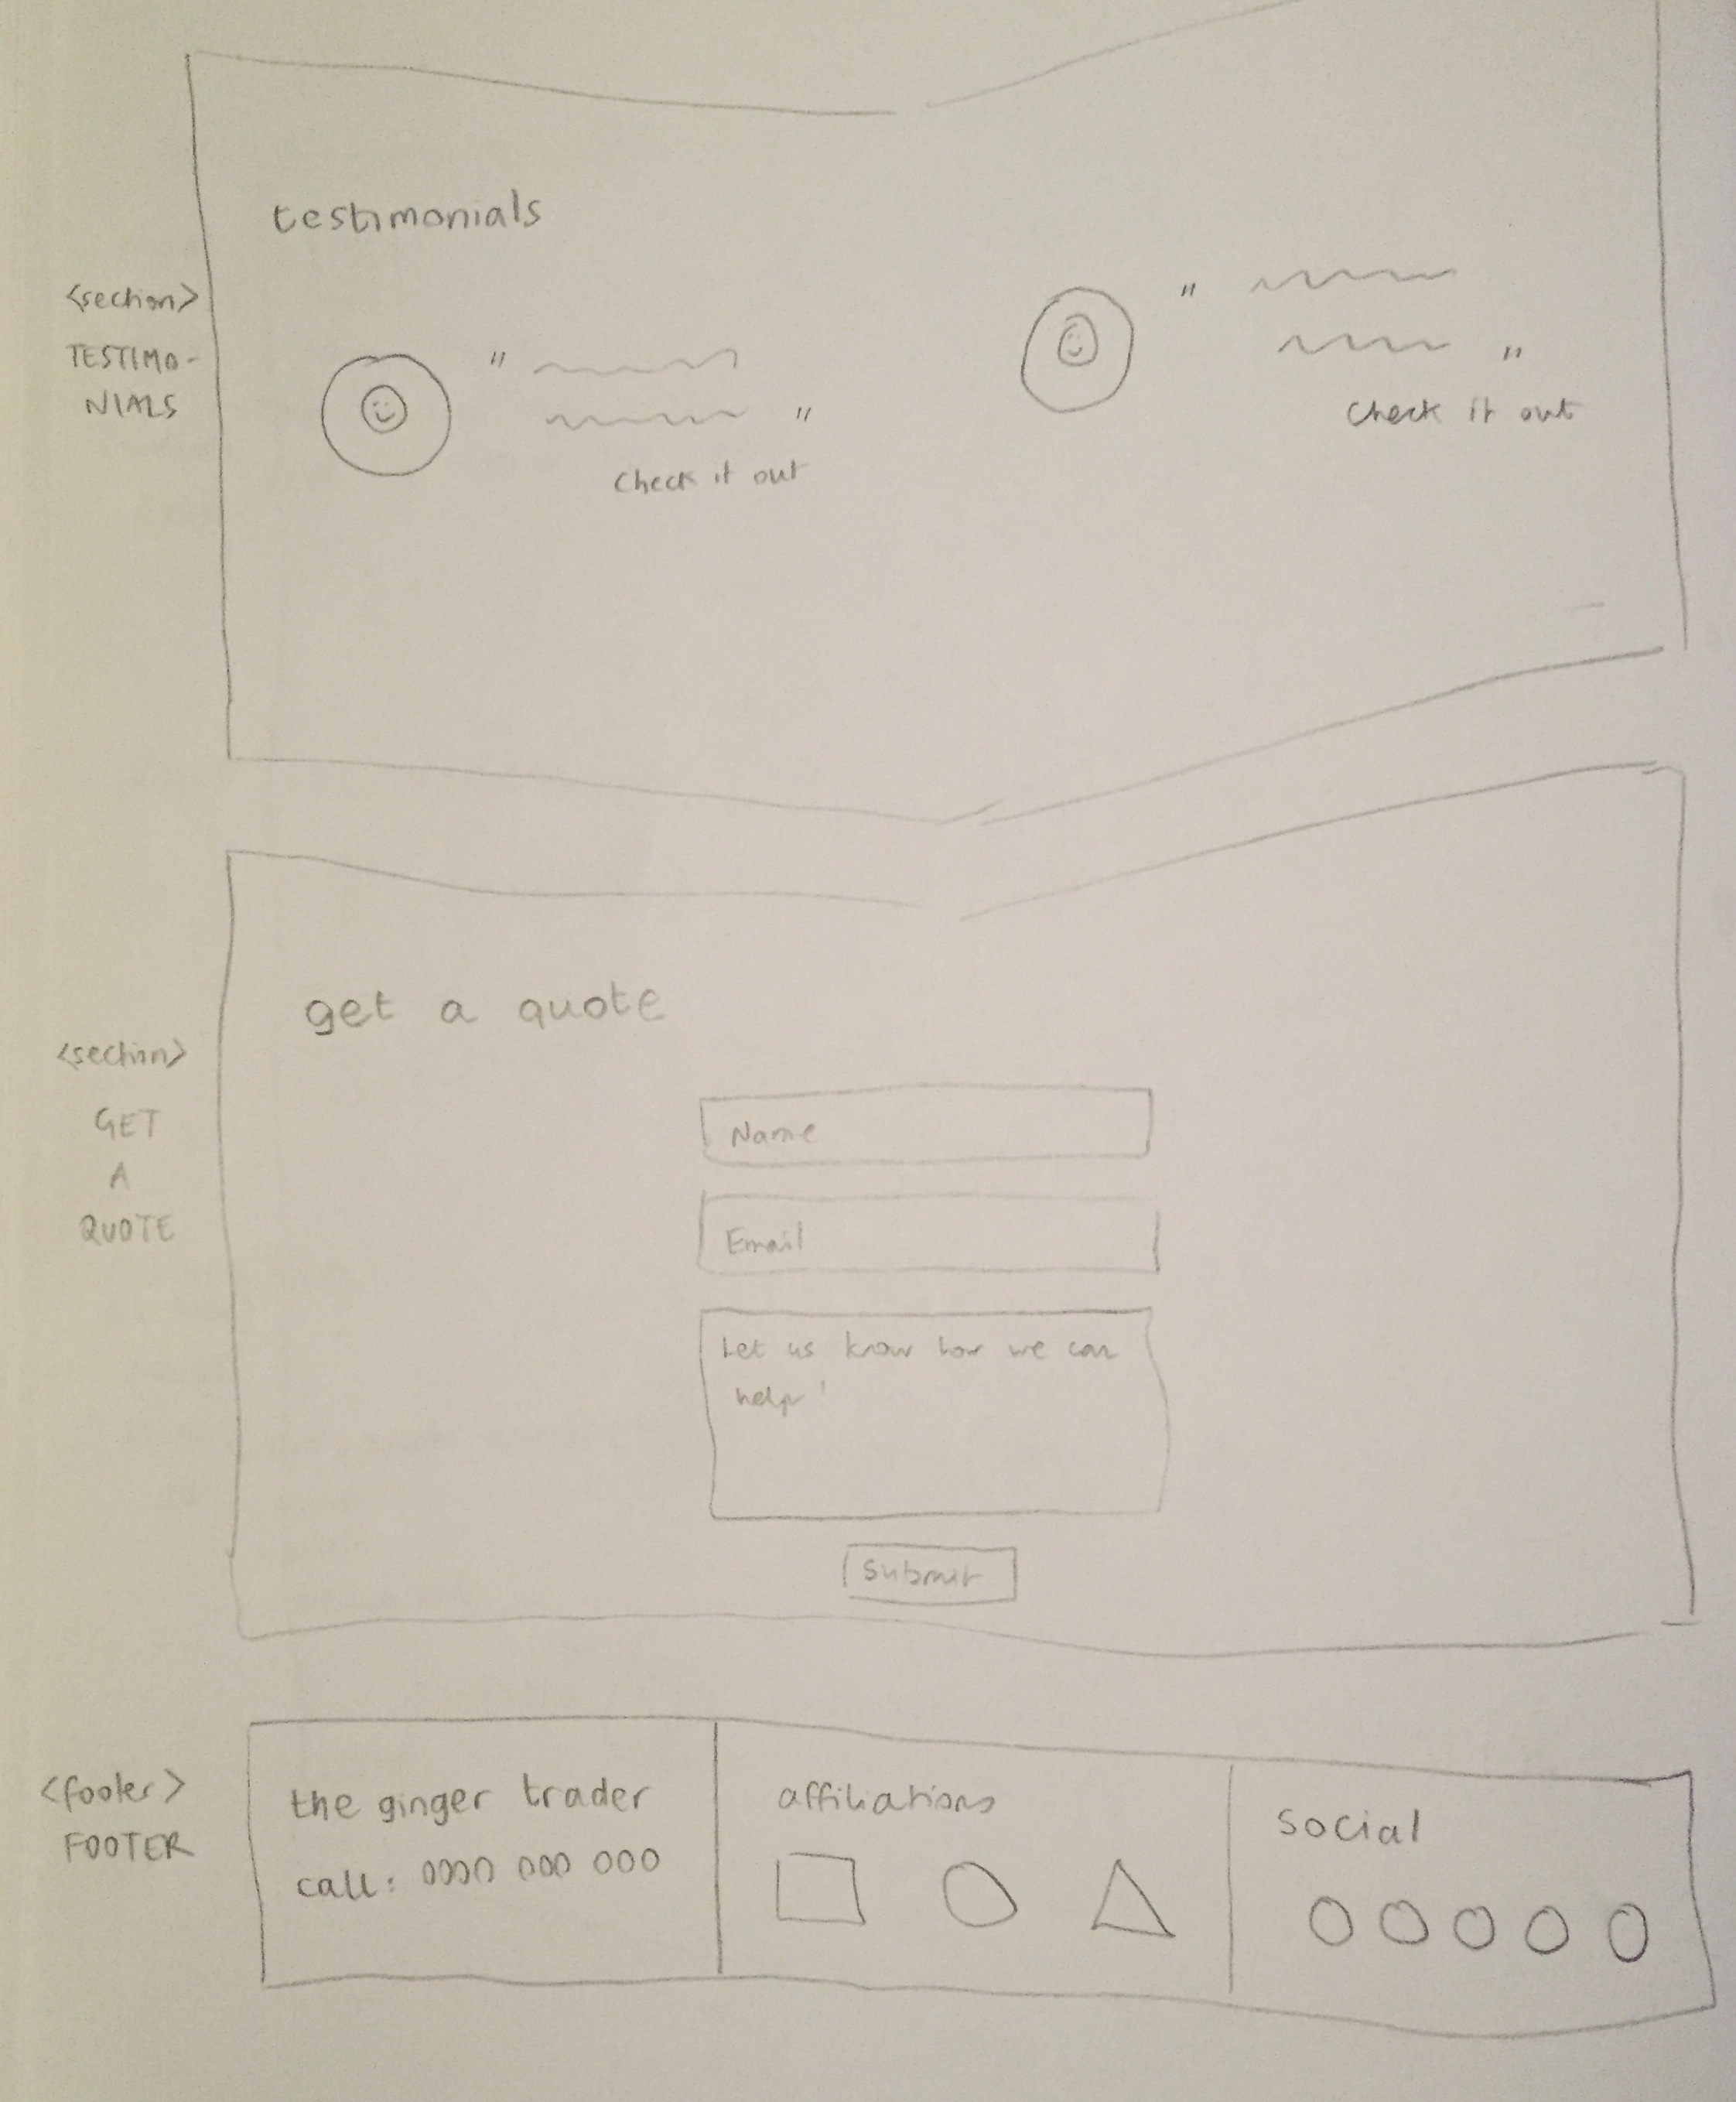 testimonials
<section>
TESTIMO-
NIALS
"
"
Check it out
"
"
Check it out
get a quote
<section>
GET
A
QUOTE
Name
Email
Let us know how we can
help!
Submit
<footer>
FOOTER
the ginger trader
call: 0000 000 000
affiliations
social